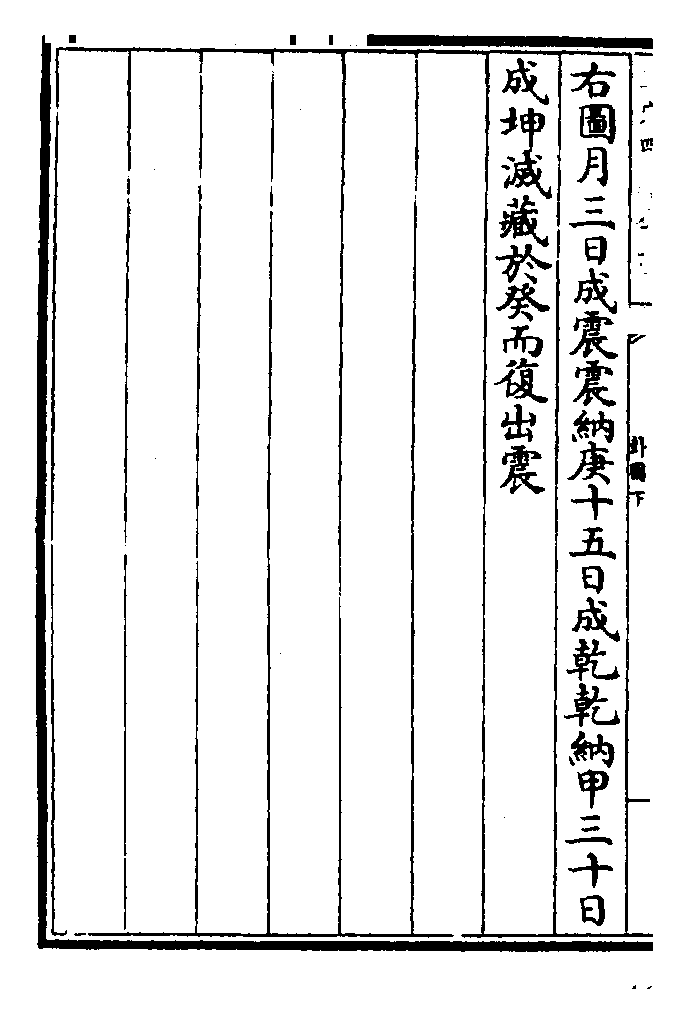 右圖月三日成震震納庚十五日成乾乾納甲三十日
成坤滅藏於癸而復出震
卦圖下